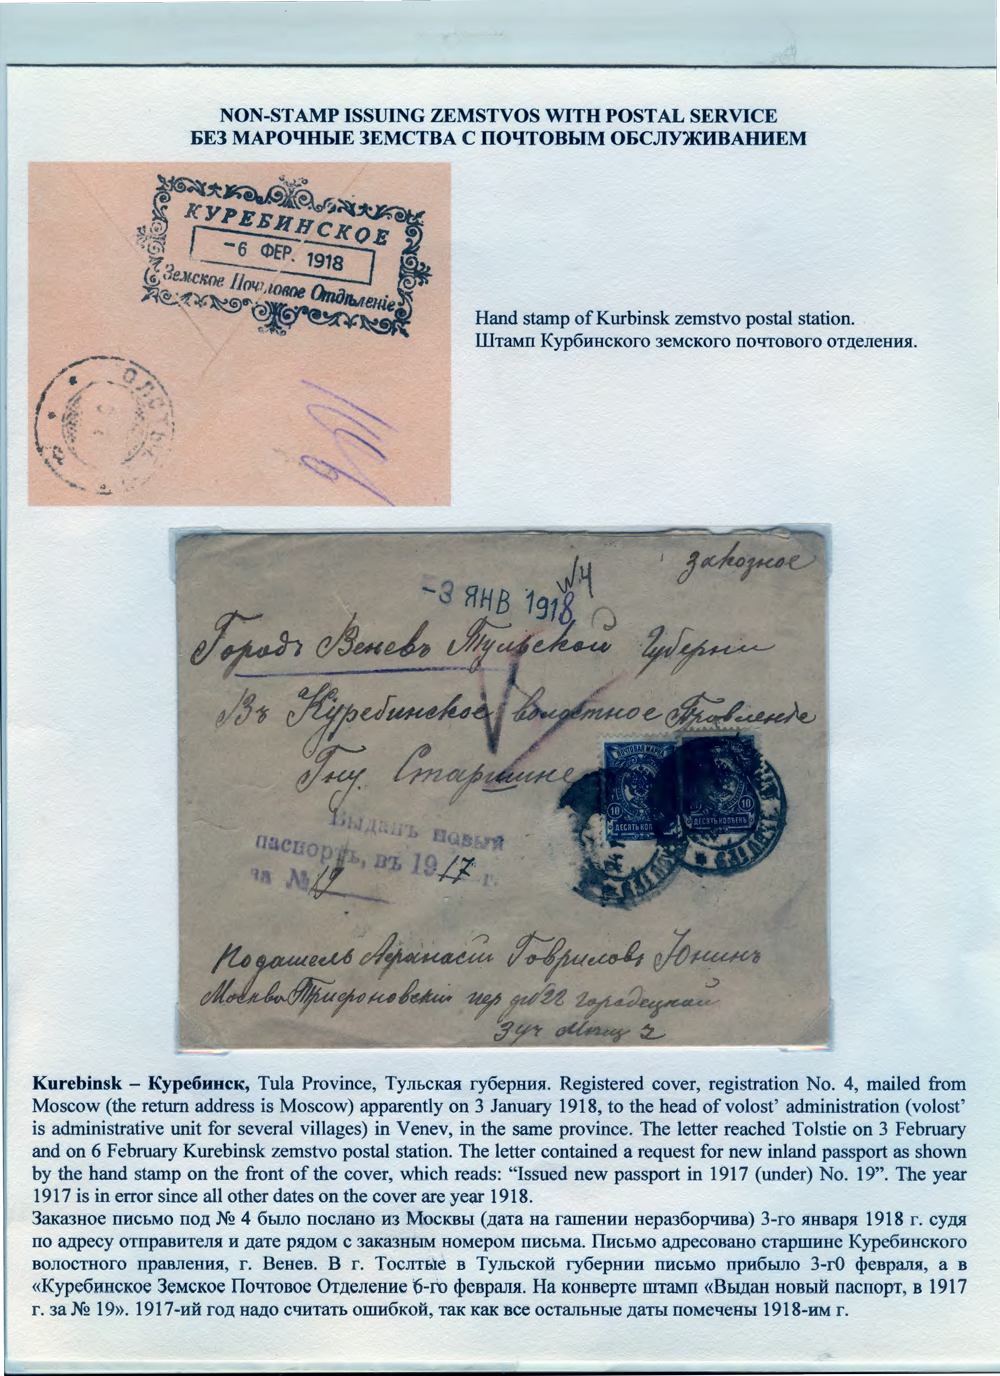 NON-STAMP ISSUING ZEMSTVOS WITH POSTAL SERVICE
БЕЗ МАРОЧНЫЕ ЗЕМСТВА С ПОЧТОВЫМ ОБСЛУЖИВАНИЕМ
КУРЕБИНСКОЕ
-6 ФЕР. 1918
Земское Почтовое Отдѣленіе
Hand stamp of Kurbinsk zemstvo postal station.
Штамп Курбинского земского почтового отделения.
заказное
-3 ЯНВ 1918
Городъ Веневъ Тульской Губерни
Въ Куребинское волостное Правление
Гну. Старшине
ПОЧТОВАЯ МАРКА
10 10
ДЕСЯТЬ КОПѢЕКЪ
Выданъ новый
паспортъ, въ 1917 г.
за № 19
Податель Афанасій Гавриловъ Юнинъ
Москва Трифоновскій пер 22 городецкой
3 уч
Kurebinsk – Куребинск, Tula Province, Тульская губерния. Registered cover, registration No. 4, mailed from
Moscow (the return address is Moscow) apparently on 3 January 1918, to the head of volost’ administration (volost’
is administrative unit for several villages) in Venev, in the same province. The letter reached Tolstie on 3 February
and on 6 February Kurebinsk zemstvo postal station. The letter contained a request for new inland passport as shown
by the hand stamp on the front of the cover, which reads: “Issued new passport in 1917 (under) No. 19”. The year
1917 is in error since all other dates on the cover are year 1918.
Заказное письмо под № 4 было послано из Москвы (дата на гашении неразборчива) 3-го января 1918 г. судя
по адресу отправителя и дате рядом с заказным номером письма. Письмо адресовано старшине Куребинского
волостного правления, г. Венев. В г. Тослтые в Тульской губернии письмо прибыло 3-г0 февраля, а в
«Куребинское Земское Почтовое Отделение 6-го февраля. На конверте штамп «Выдан новый паспорт, в 1917
г. за № 19». 1917-ий год надо считать ошибкой, так как все остальные даты помечены 1918-им г.